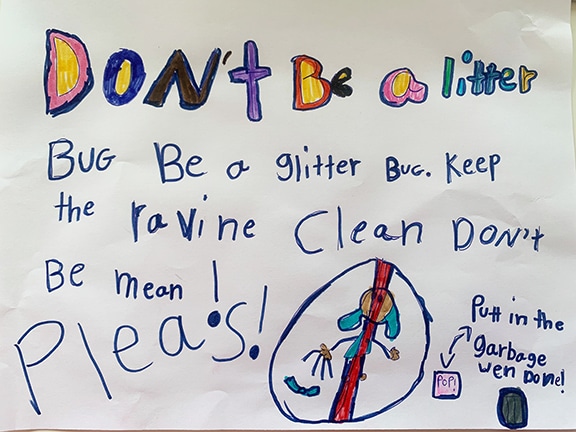 DON't Be a litter
BUG Be a glitter BUG. Keep
the ravine Clean DON't
Be mean!
Pleas!
Putt in the
garbage
wen Done!
POP!